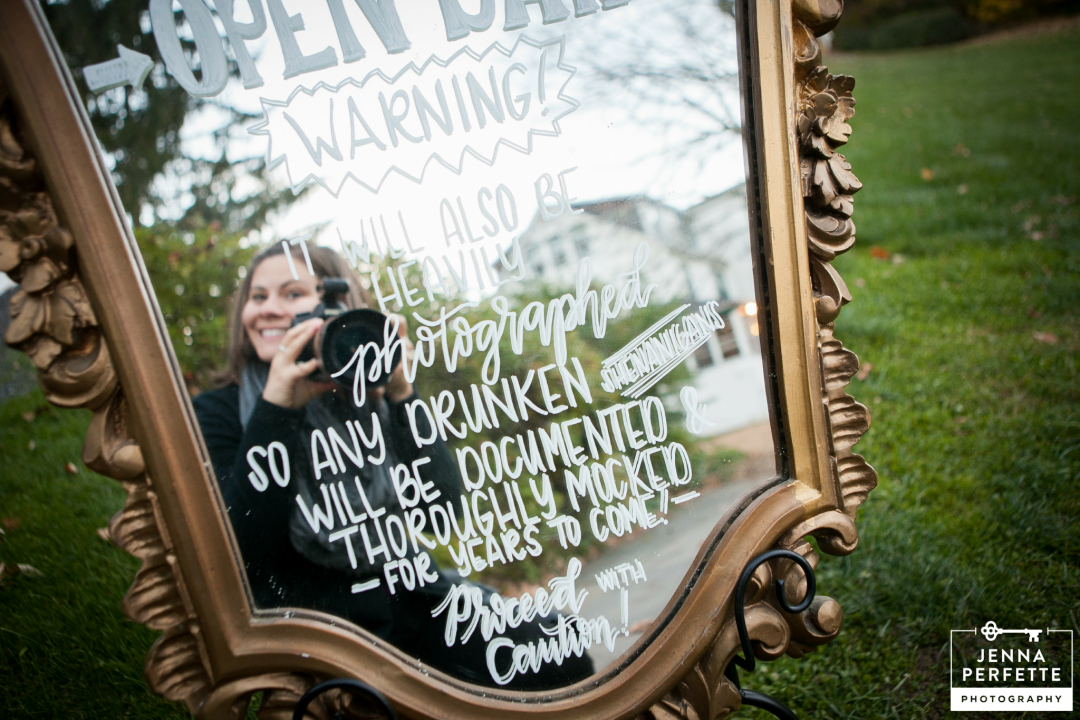 OPEN BAR
WARNING!
IT WILL ALSO BE
HEAVILY
photographed
SO ANY DRUNKEN SHENANIGANS
WILL BE DOCUMENTED &
THOROUGHLY MOCKED
—FOR YEARS TO COME!—
Proceed WITH
Caution!
JENNA
PERFETTE
PHOTOGRAPHY